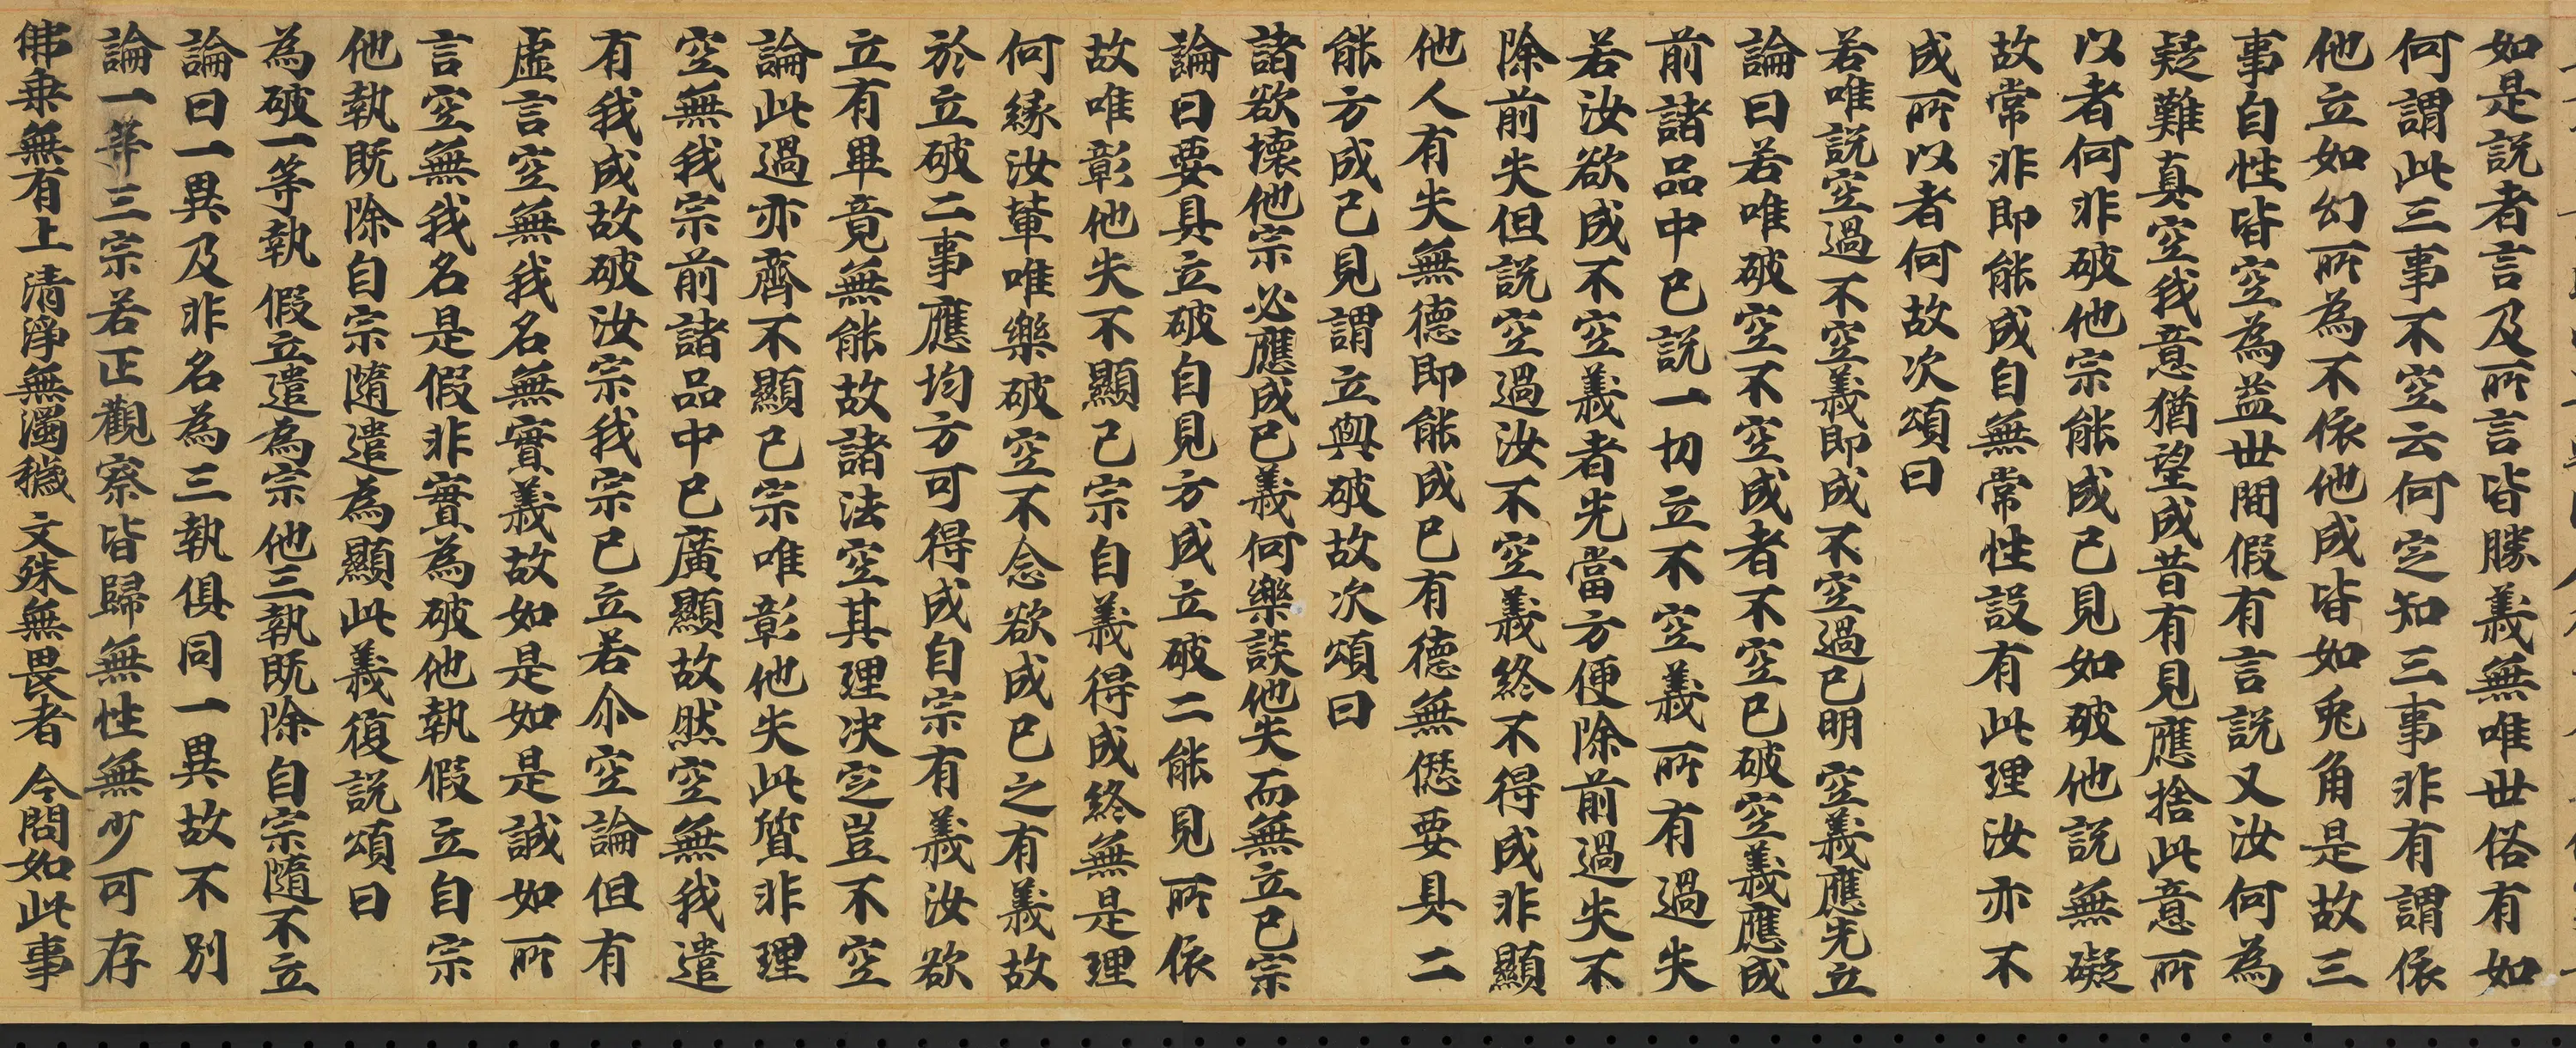 如是說者言及所言皆勝義無唯世俗有如
何謂此三事不空云何定知三事非有謂依
他立如幻所為不依他成皆如兎角是故三
事自性皆空為益世間假有言說又汝何為
疑難真空我意猶望成昔有見應捨此意所
以者何非破他宗能成己見如破他說無礙
故常非即能成自無常性設有此理汝亦不
成所以者何故次頌曰
若唯說空過不空義即成不空過已明空義應先立
論曰若唯破空不空成者不空已破空義應成
前諸品中已說一切立不空義所有過失
若汝欲成不空義者先當方便除前過失不
除前失但說空過汝不空義終不得成非顯
他人有失無德即能成已有德無𠍴要具二
能方成己見謂立與破故次頌曰
諸欲壞他宗必應成己義何樂談他失而無立己宗
論曰要具立破自見方成立破二能見所依
故唯彰他失不顯己宗自義得成終無是理
何緣汝輩唯樂破空不念欲成已之有義故
於立破二事應均方可得成自宗有義汝欲
立有畢竟無能故諸法空其理決定豈不空
論此過亦齊不顯己宗唯彰他失此質非理
空無我宗前諸品中已廣顯故然空無我遣
有我成故破汝宗我宗已立若尒空論但有
虛言空無我名無實義故如是如是誠如所
言空無我名是假非實為破他執假立自宗
他執既除自宗隨遣為顯此義復說頌曰
為破一等執假立遣為宗他三執既除自宗隨不立
論曰一異及非名為三執俱同一異故不別
論一等三宗若正觀察皆歸無性無少可存
佛乘無有上清淨無濁穢文殊無畏者今問如此事